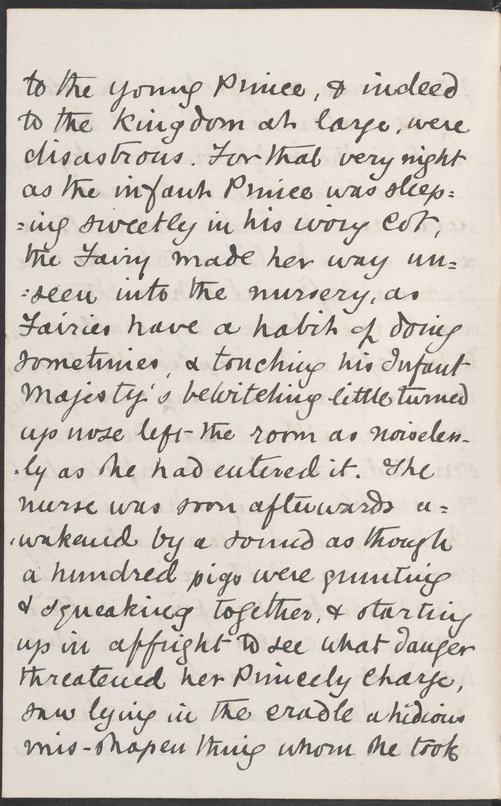 to the young Prince, & indeed
to the Kingdom at large, were
disastrous. For that very night
as the infant Prince was sleep=
=ing sweetly in his ivory Cot,
the Fairy made her way un=
=seen into the nursery, as
Fairies have a habit of doing
sometimes, & touching his Infant
Majesty's bewitching little turned
up nose left the room as noiseless-
-ly as she had entered it. The
nurse was soon afterwards a=
=wakened by a sound as though
a hundred pigs were grunting
& squeaking together, & starting
up in affright to see what danger
threatened her Princely Charge,
saw lying in the cradle a hidious
mis-shapen thing whom she took